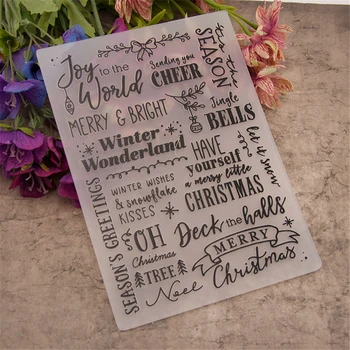 Joy
to the
World
Sending you
CHEER
'tis the
SEASON
MERRY & BRIGHT
Jingle
BELLS
Winter
Wonderland
let it snow
HAVE
yourself
a merry little
CHRISTMAS
WINTER WISHES
& snowflake
KISSES
SEASON'S GREETINGS
OH
Christmas
TREE
Deck the halls
MERRY
Christmas
Noel